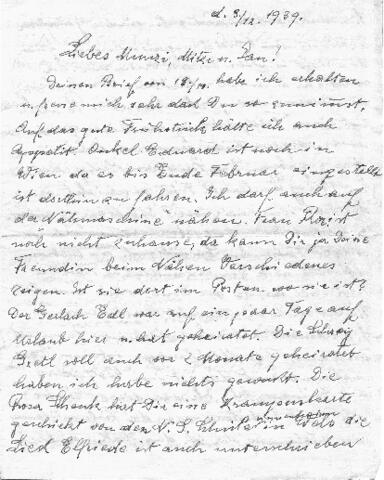 d. 3/12. 1939.
Liebes Munzi, Mitzi u. Pan!
Deinen Brief von 18/10. habe ich erhalten
u. freue mich sehr daß Du so zunimmst.
Auf das gute Frühstück hätte ich auch
Appetit. Onkel Eduard ist noch in
Wien da es bis Ende Februar eingestellt
ist dorthin zu fahren. Ich darf auch auf
der Nähmaschine nähen. Frau ist
nicht zuhause, da kann Dir ja Deine
Freundin beim Nähen Verschiedenes
zeigen. Ist sie dort im Posten wo sie ist?
Der Gerlach Edl war auf ein paar Tage auf
Urlaub hier u. hat geheiratet. Die
Gretl soll auch vor 2 Monate geheiratet
haben ich habe nichts gewußt. Die
Rosa hat Dir eine Krampuskarte
geschickt von der N. S. in die
Lied Elfriede ist auch unterschrieben